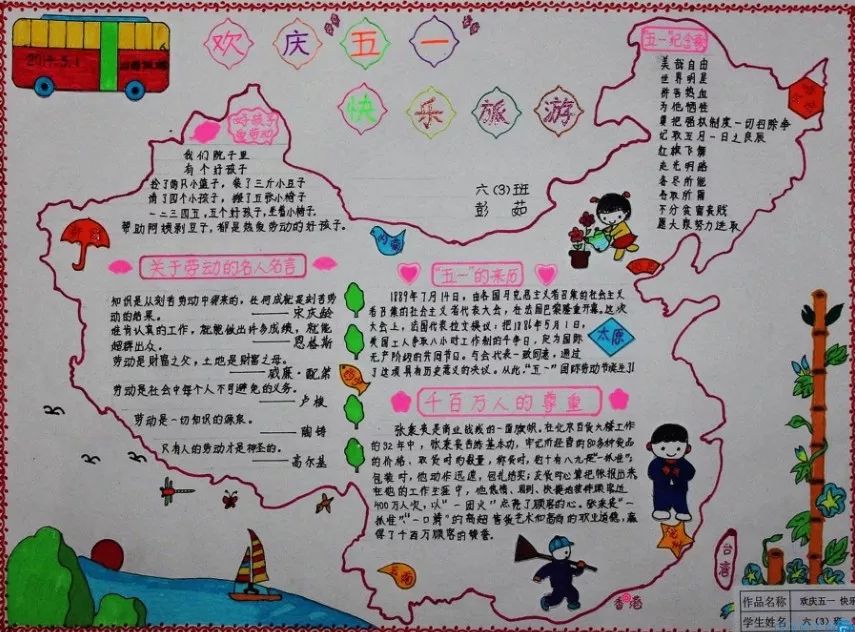 2017.5.1
欢庆五一
快乐旅游
六(3)班
彭茹
"五一"纪念碑
美哉自由
世界明星
拼吾热血
为他牺牲
要把强权制度一切扫除净
记取五月一日之良辰
红旗飞舞
走光明路
各尽所能
各取所需
不分贫富贵贱
愿大家努力进取
好孩子
爱劳动
我们院子里
有个好孩子
拾了两只小篮子,装了三斤小豆子
请了四个小孩子,搬了五张小椅子
一二三四五,五个好孩子,坐着小椅子.
帮助阿姨剥豆子,都是热爱劳动的好孩子.
关于劳动的名人名言
知识是从刻苦劳动中得来的,任何成就是刻苦劳
动的结果。
——宋庆龄
谁肯认真的工作,就能做出许多成绩,就能
超群出众。
——恩格斯
劳动是财富之父,土地是财富之母。
——威廉·配第
劳动是社会中每个人不可避免的义务。
——卢梭
劳动是一切知识的源泉。
——陶铸
只有人的劳动才是神圣的。
——高尔基
"五一"的来历
1889年7月14日,由各国马克思主义者召集的社会主义
者召集的社会主义者代表大会,在法国巴黎隆重开幕。这次
大会上,法国代表拉文提议:把1886年5月1日,
美国工人争取八小时工作制的斗争日,定为国际
无产阶级的共同节日。与会代表一致同意,通过
了这项具有历史意义的决议。从此"五一"国际劳动节诞生了!
千百万人的尊重
张秉贵是商业战线的一面旗帜。在北京百货大楼工作
的32年中,张秉贵苦练基本功,牢记所经营的80多种食品
的价格、
包装时,他动作迅速,包扎结实;
在他的工作生涯中,他热情、周到、
400万人次,以"一团火"点亮了顾客的心。张秉贵"一
抓准"、"一口清"的高超售货艺术和高尚的职业道德,赢
得了千百万顾客的赞誉。
太原
香港
台湾
作品名称 欢庆五一 快乐
学生姓名 六(3)班